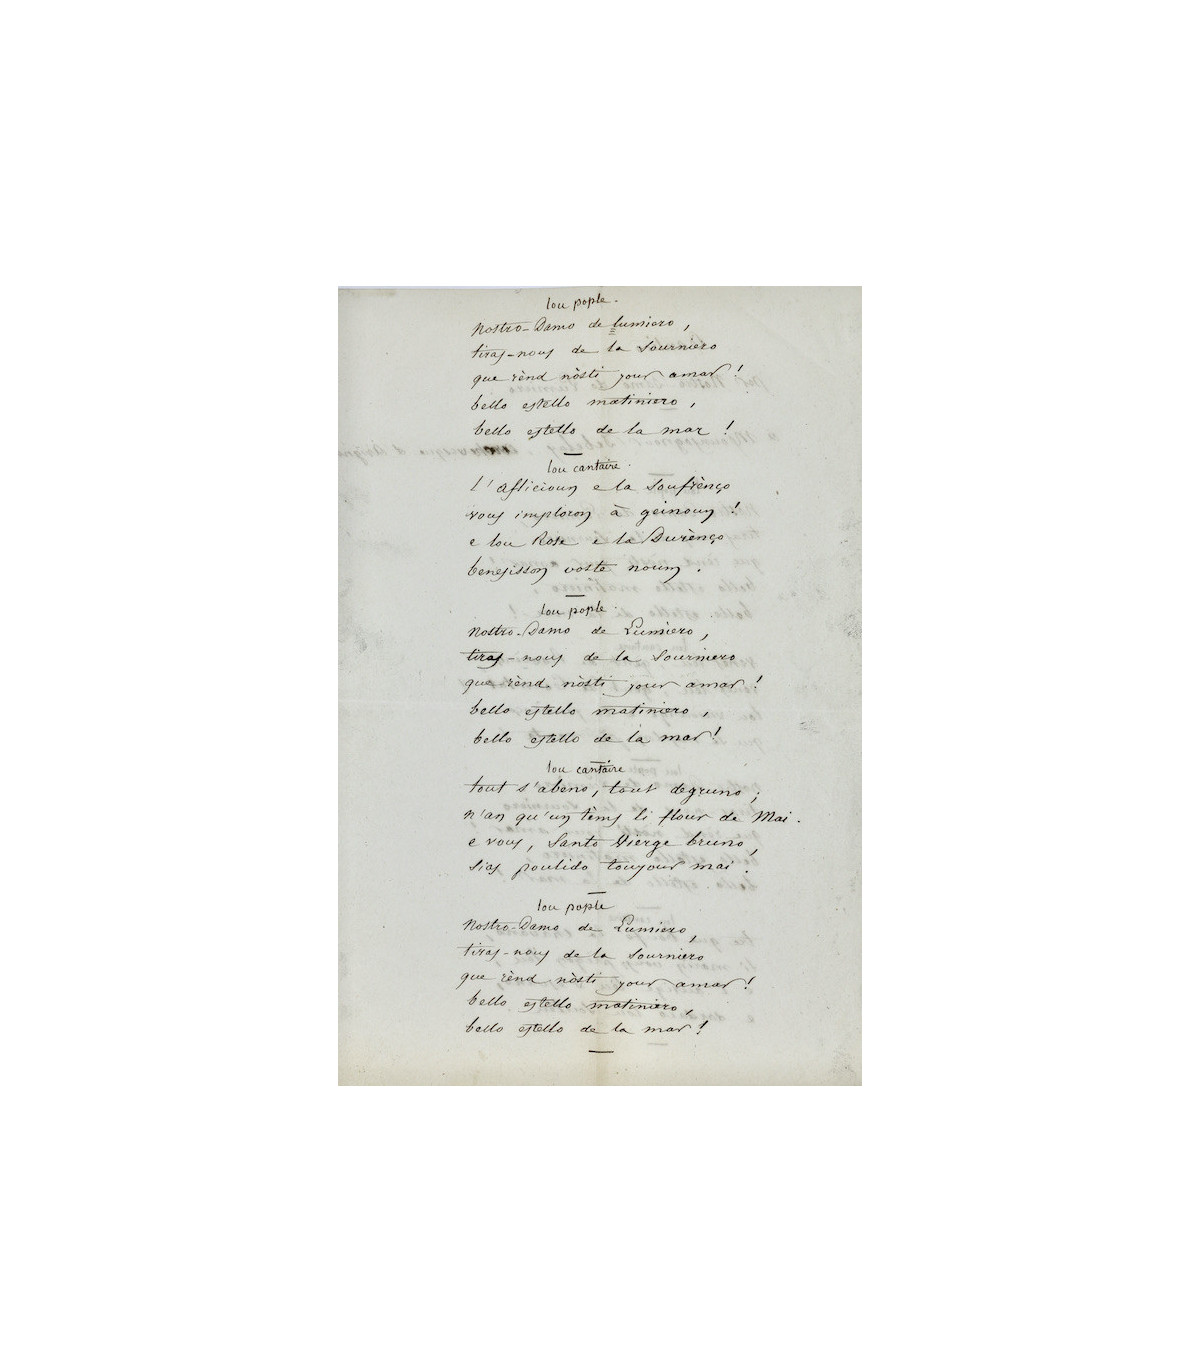 lou pople.
Nostro-Damo de lumiero,
tiras-nous de la sourniero
que rènd nòsti jour amar!
bello estello matiniero,
bello estello de la mar!
lou cantaire.
l'aflicioun e la soufrènço
vous imploron à geinoun!
e lou Rose e la Durènço
benesisson voste noum.
lou pople.
Nostro-Damo de Lumiero,
tiras-nous de la sourniero
que rènd nòsti jour amar!
bello estello matiniero,
bello estello de la mar!
lou cantaire
tout s'abeno, tout degruno;
n'an qu'un tèms li flour de Mai.
e vous, Santo Vierge bruno,
sias poulido toujour mai.
lou pople
Nostro-Damo de Lumiero,
tiras-nous de la sourniero
que rènd nòsti jour amar!
bello estello matiniero,
bello estello de la mar!